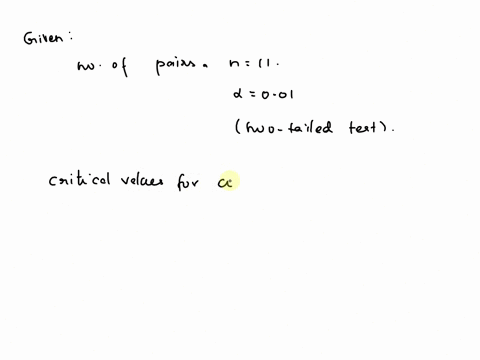 Given:
no. of pairs. n = 11.
α = 0.01
(two-tailed test).
critical values for